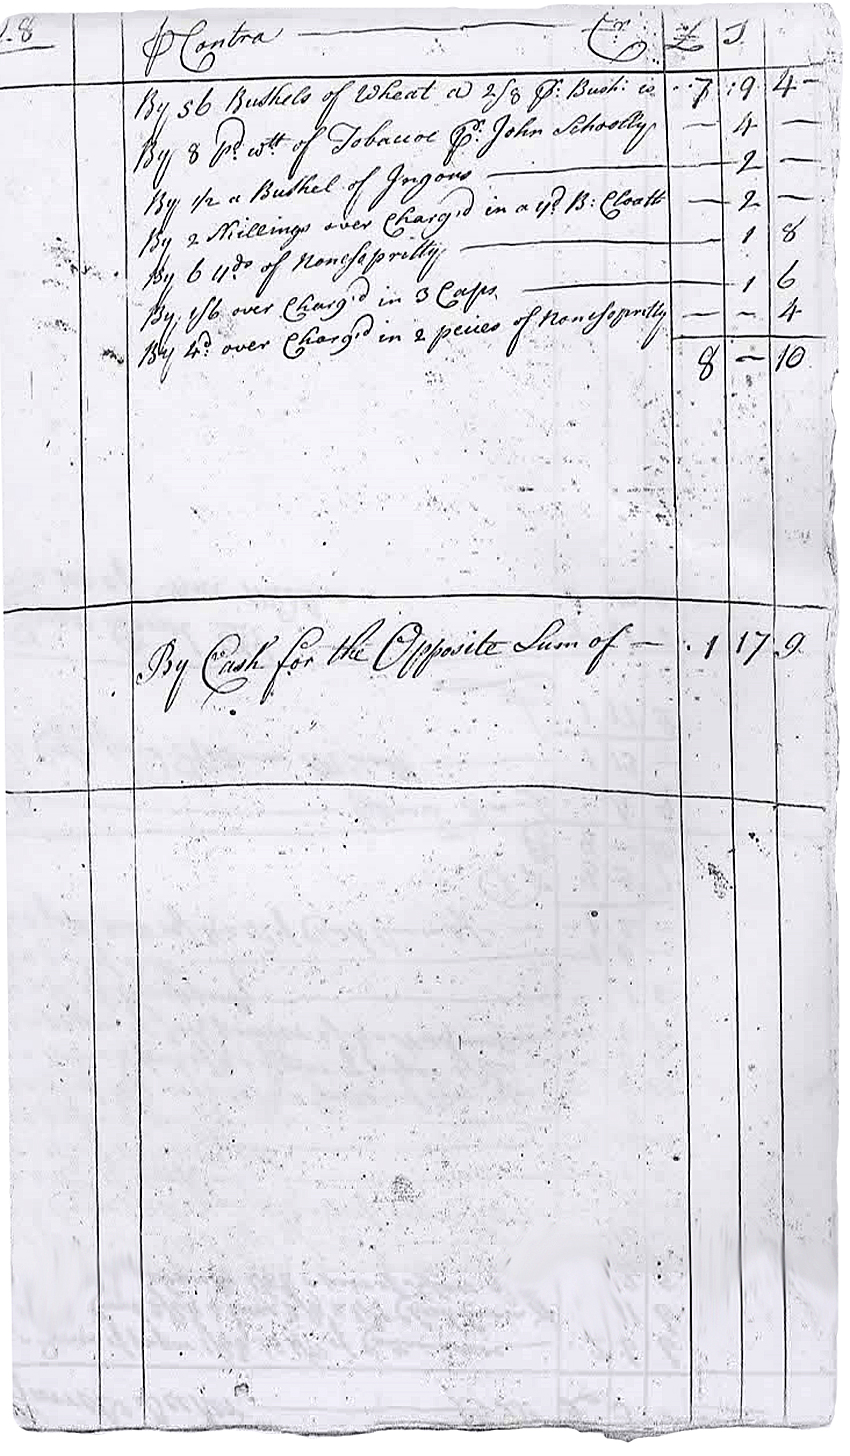 1.8 Contra Cr. £ S
By 56 Bushels of Wheat @ 2/8 ⅌r. Bush: is 7 :9 4 -
By 8 pd. wtt of Tobaccoe ⅌r. John Schoolly — 4 —
By 1/2 a Bushel of Ingons — 2 —
By 2 Shillings over Charg'd in a yd. B: Cloath — 2 —
By 6 yds of Nonesopritty — 1 8
By 1/6 over Charg'd in 3 Caps — 1 6
By 4d. over Charg'd in 2 peices of Nonesopritty — - 4
8 — 10
By Cash for the Opposite Sum of — 1 17 9